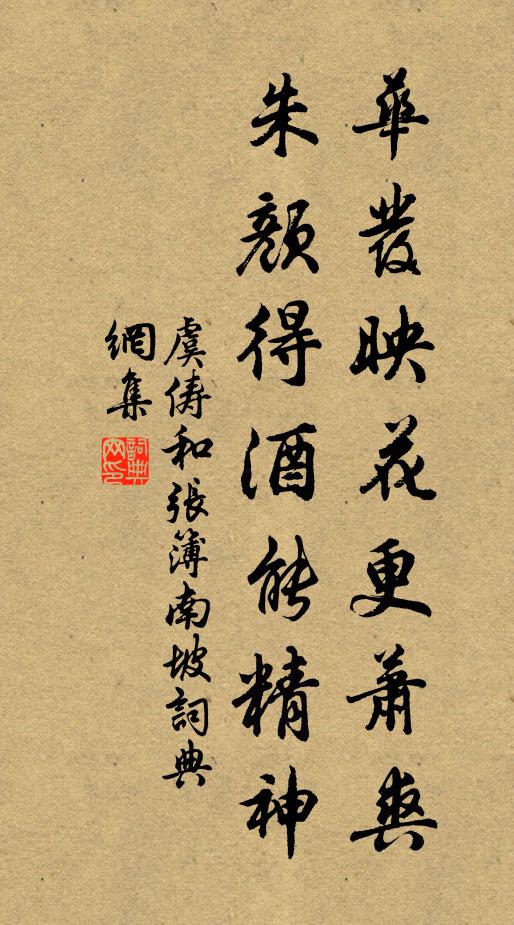 華發映花更蕭爽
朱顏得酒能精神
虞儔和張簿南坡詞典
網集
詞典网印